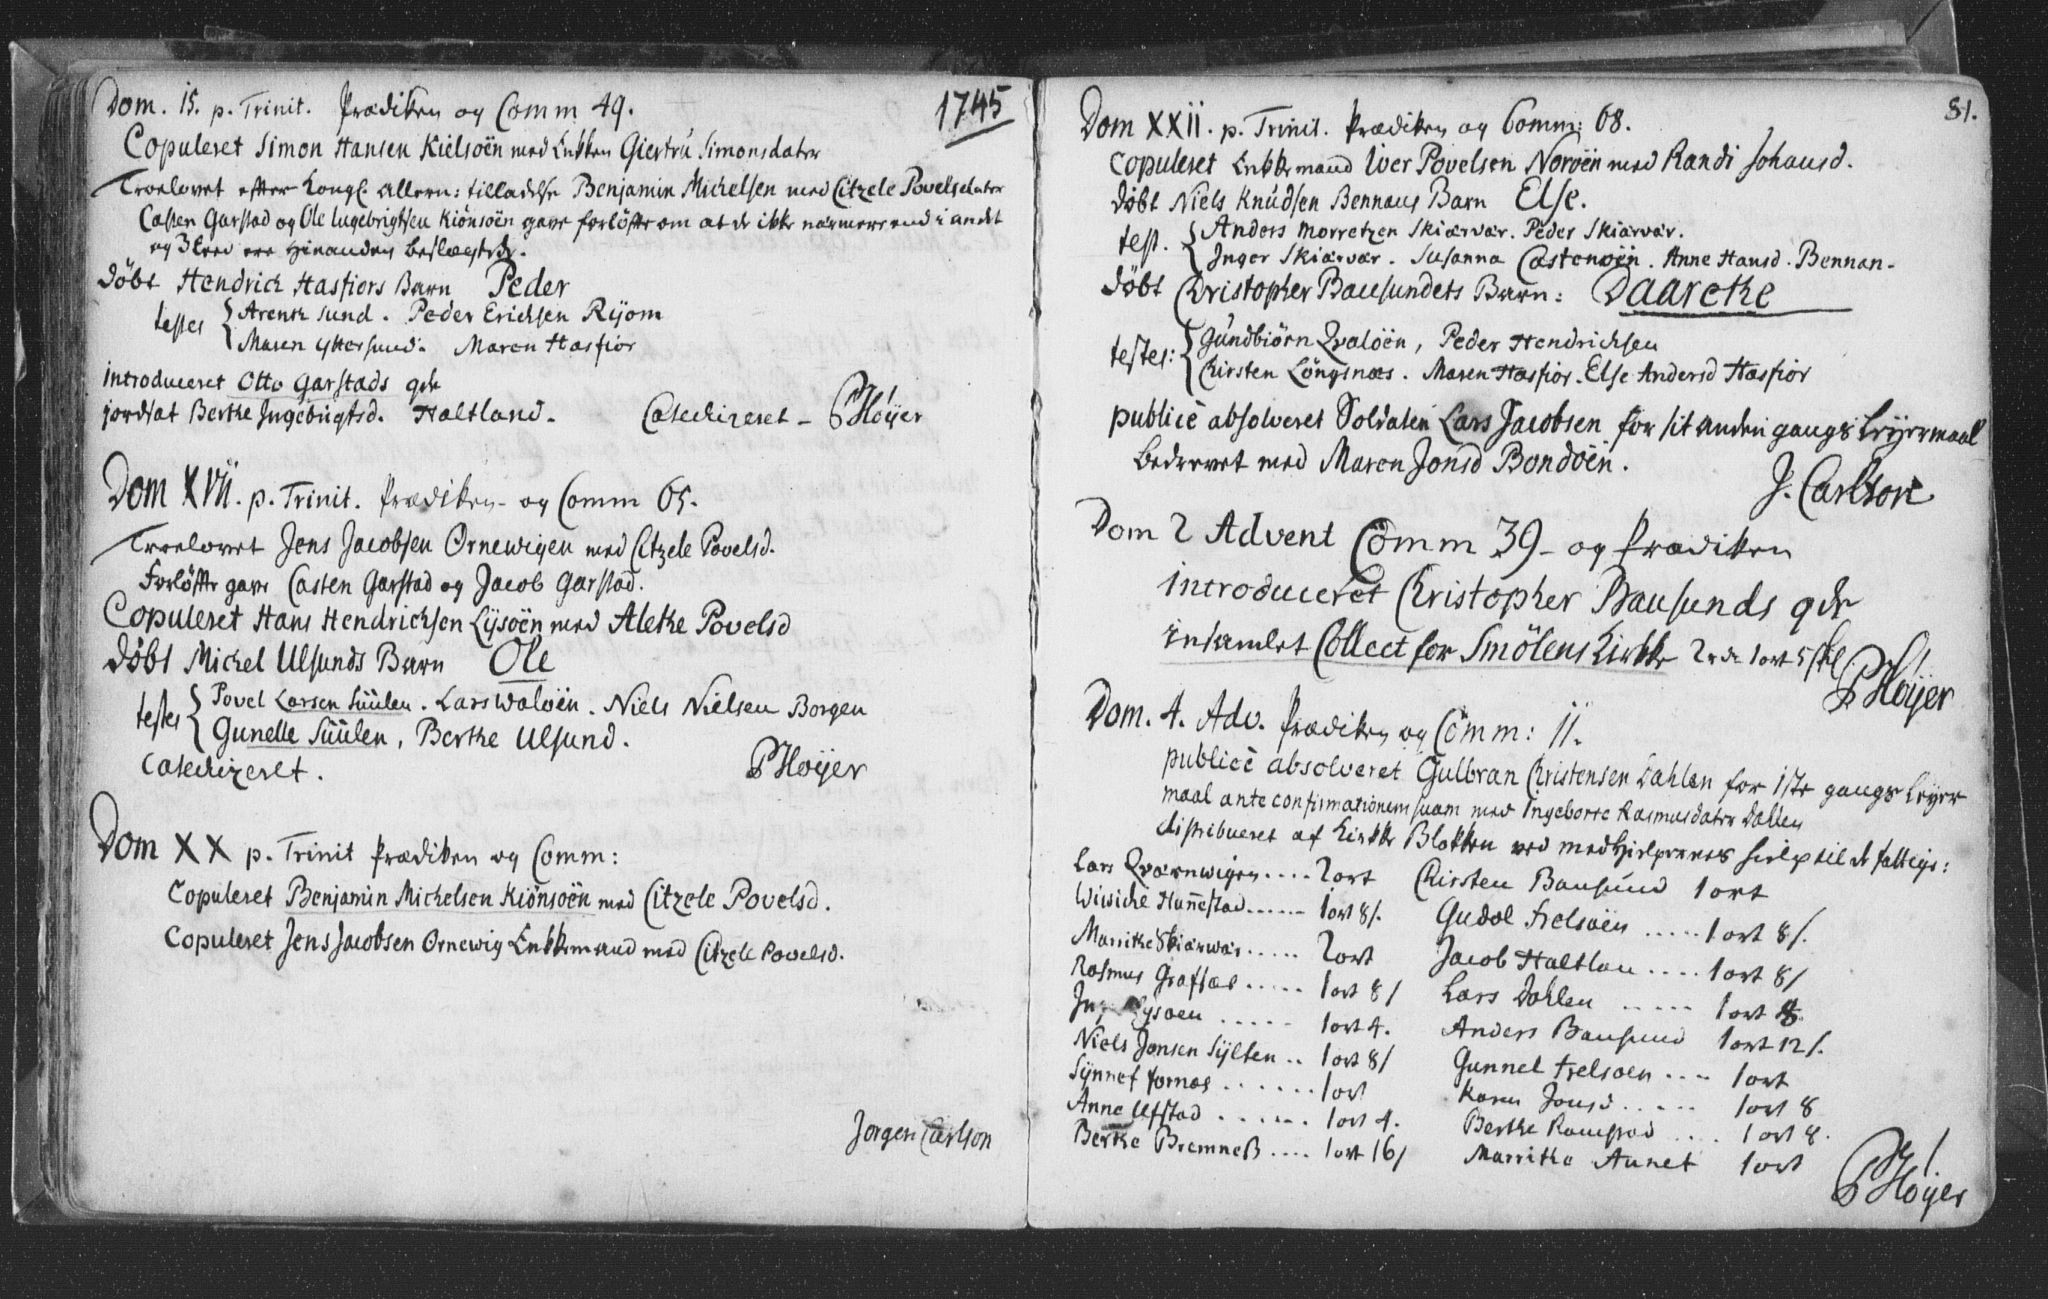 1745
Dom. 15. p. Trinit. Prædiken og Comm 49.
Copuleret Simon Hansen Kielsöen med Enken Giertru Simonsdater
Troelovet efter Kongl. allern: tilladelse Benjamin Michelsen med Citzele Povelsdater
Casten Garstad og Ole Ingebrigtsen Kiönsöen gave forlöfte om at de ikke nærmere end i andet
og 3die leed ere Hinanden beslægtede.
Döbt Hendrich Hasfiors Barn Peder
testes Arent sund. Peder Erichsen Rÿom
Maren yttersund. Maren Hasfior
introduceret Otto Garstads qde
jordsat Berthe Ingebrigtsd. Haltland. Catechizeret – PHöÿer
Dom XVII. p. Trinit. Prædiken – og Comm 65.
Troelovet Jens Jacobsen Ornewigen med Citzele Povelsd.
Forlöffte gave Casten Garstad og Jacob Garstad.
Copuleret Hans Hendrichsen Lÿsöen med Alethe Povelsd
Döbt Michel Ulsunds Barn Ole
testes Povel Larsen Süülen. Lars Walöen. Niels Nielsen Borgen
Gunelle Süülen, Berthe Ulsund.
Catechizeret. PHöÿer
Dom XX p. Trinit Prædiken og Comm:
Copuleret Benjamin Michelsen Kiönsöen med Citzele Povelsd.
Copuleret Jens Jacobsen Ornewig Enkkemand med Citzele Povelsd.
Jorgen Carlson
81.
Dom XXII. p. Trinit. Prædiken og Comm: 68.
Copuleret Enkkemand Iver Povelsen Noröen med Randi Johansd.
Döbt Niels Knudsen Bennans Barn Else.
test. Anders Morretzen Skiærvær. Peder Skiærvær.
Inger Skiærvær. Susanna Castenöen. Anne Hansd. Bennan.
Döbt Christopher Bausundets Barn: Daarethe
testes: Gundbiörn Qvalöen, Peder Hendrichsen
Chirsten Löngsnæs. Maren Hasfior. Else Andersd Hasfior
publicè absolveret Soldaten Lars Jacobsen for sit anden gangs Leÿermaal
Bedrevet med Maren Jonsd Bondöen.
J. Carlson
Dom 2 Advent Comm 39 – og Prædiken
introduceret Christopher Bausunds qde
insamlet Collect for Smölens Kirke 2rd 1ort 5sk
PHöÿer
Dom. 4. Adv. Prædiken og Comm: 11.
publicè absolveret Gulbran Christensen Dahlen for 1ste gangs Leÿer
maal ante confirmationem suam med Ingeborre Rasmusdater Dahlen
distribueret af Kirke Blokken ved Medhielpernes hielp til de fattige:
Lars Qværnwigen .... 2ort Chirsten Bausund 1ort
Wiwiche Hannestad ...... 1ort 8s. Gudol Frelsöen ..... 1ort 8s.
Marrithe Skiærwær ..... 2ort Jacob Haltlan .... 1ort 8s
Rasmus Grafsæt ..... 1ort 8s Lars Dahlen ..... 1ort 8.
Lÿsöen ..... 1ort 4. Anders Bausund 1ort 12s.
Niels Jonsen Sÿlten .. 1ort 8s Gunnel Frelsöen .... 1ort
Sÿnnef Fornes ....... 1ort Karen Jonsd ..... 1ort 8
Anne Ulfstad ...... 1ort 4. Berthe Ramstad .... 1ort 8.
Berthe Bremneß .... 1ort 16s Marrithe Aunet 1ort
PHöÿer